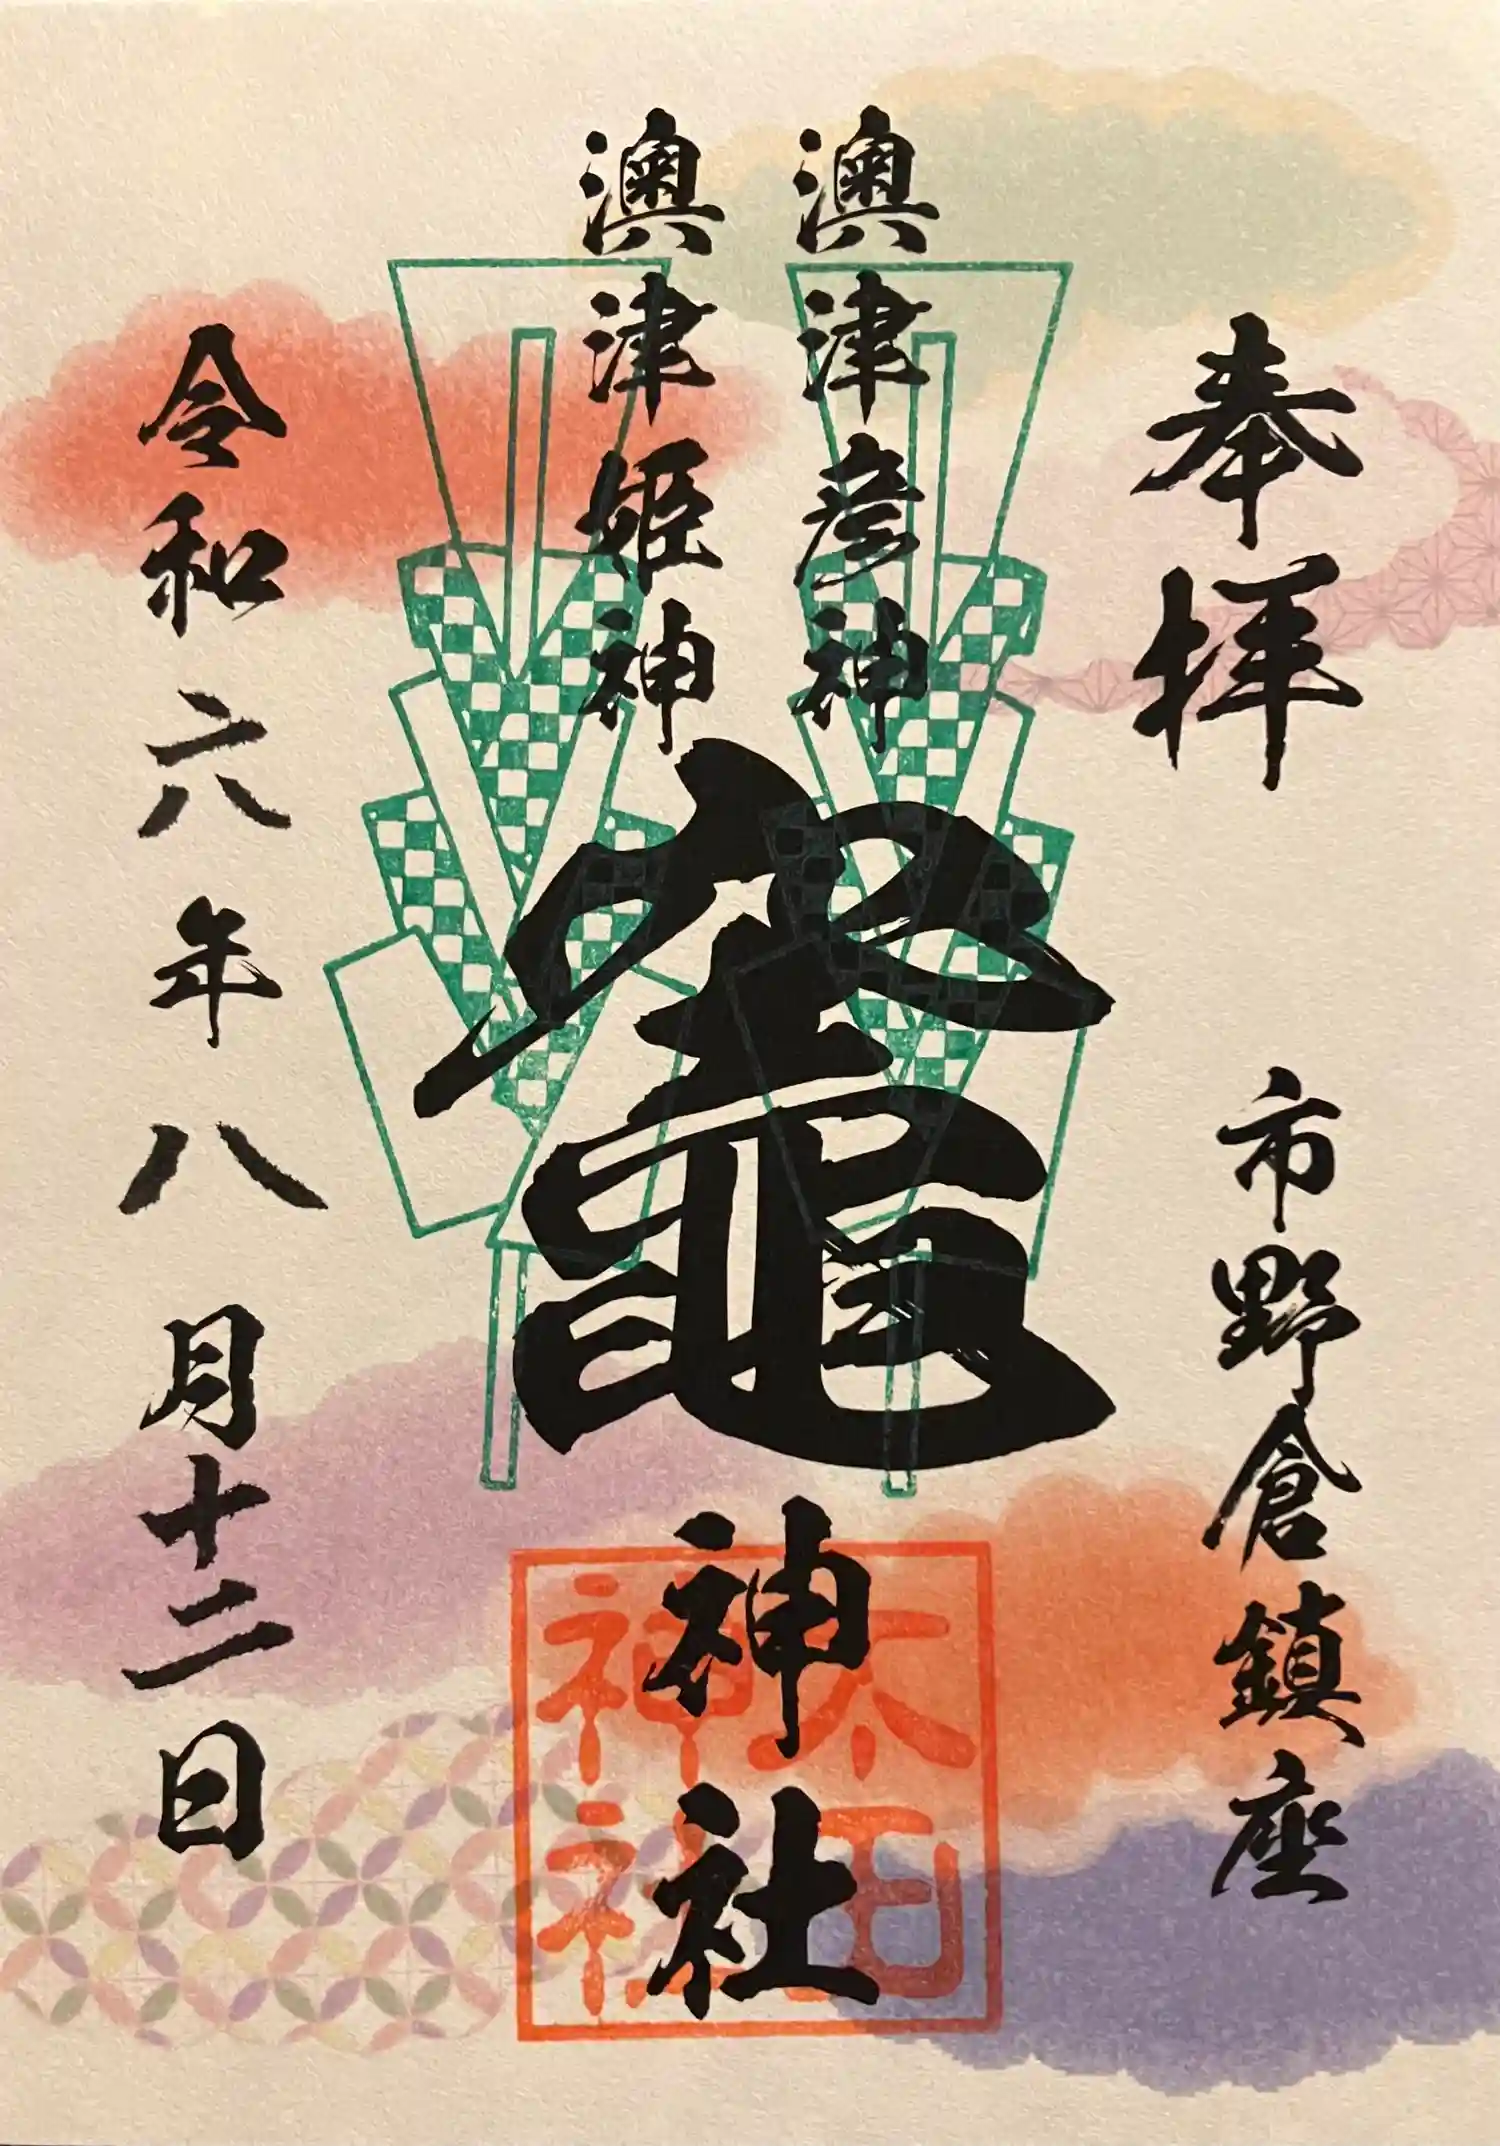 奉拝
市野倉鎮座
澳津彦神
澳津姫神
竈神社
太田
神社
令和六年八月十二日